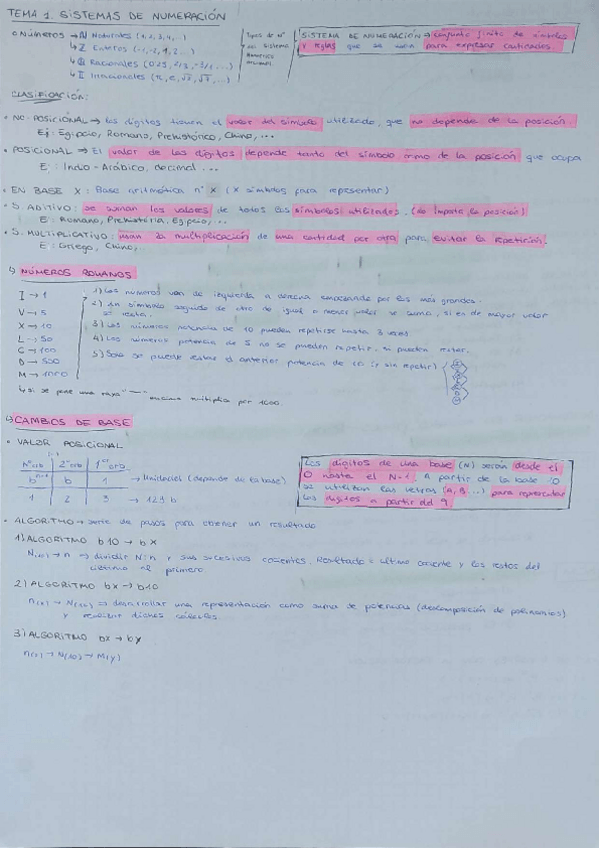 TEMA 1. SISTEMAS DE NUMERACIÓN
o Números → N Naturales (1, 2, 3, 4, ...)
↳ Z Enteros (-1, -2, 1, 2 ...)
↳ Q Racionales (0'25, 2/3, -3/1, ...)
↳ I Irracionales (π, e, √2, √3, ...)
Tipos de nº
SISTEMA DE NUMERACIÓN → conjunto finito de símbolos
y reglas que se usan para expresar cantidades.
CLASIFICACIÓN:
• NO-POSICIONAL → Los dígitos tienen el valor del símbolo utilizado, que no depende de la posición.
Ej: Egipcio, Romano, Prehistórico, Chino, ...
• POSICIONAL → El valor de los dígitos depende tanto del símbolo como de la posición que ocupa
Ej: Indo-Arábico, decimal ...
• EN BASE X: Base aritmética nº X (X símbolos para representar)
• S. ADITIVO: se suman los valores de todos los símbolos utilizados. (no importa la posición)
Ej: Romano, Prehistoria, Egipcio, ...
• S. MULTIPLICATIVO: usan la multiplicación de una cantidad por otra para evitar la repetición.
Ej: Griego, Chino, ...
1) NÚMEROS ROMANOS
I → 1
V → 5
X → 10
L → 50
C → 100
D → 500
M → 1000
1) Los números van de izquierda a derecha empezando por los más grandes.
2) Un símbolo seguido de otro de igual o menor valor se suma, si es de mayor valor
se resta.
3) Los números potencia de 10 pueden repetirse hasta 3 veces.
4) Los números potencia de 5 no se pueden repetir, ni pueden restar.
5) Solo se puede restar el anterior potencia de 10 (y sin repetir)
↳ si se pone una raya "—" encima multiplica por 1000.
CAMBIOS DE BASE
• VALOR POSICIONAL
Nº orb 2º orb 1er orb
bⁿ⁻¹ b 1 → Unidades (depende de la base)
1 2 3 → 123 b
Los dígitos de una base (N) serán desde el
0 hasta el N-1. A partir de la base 10
se utilizan las letras (A, B, ...) para representar
los dígitos a partir del 9
• ALGORITMO → serie de pasos para obtener un resultado
1) ALGORITMO b10 → bX
N(10) → n → dividir N:n y sus sucesivos cocientes. Resultado = último cociente y los restos del
último al primero.
2) ALGORITMO bX → b10
n(x) → N(10) → desarrollar una representación como suma de potencias (descomposición de polinomios)
y realizar dichos cálculos.
3) ALGORITMO bx → by
n(x) → N(10) → M(y)